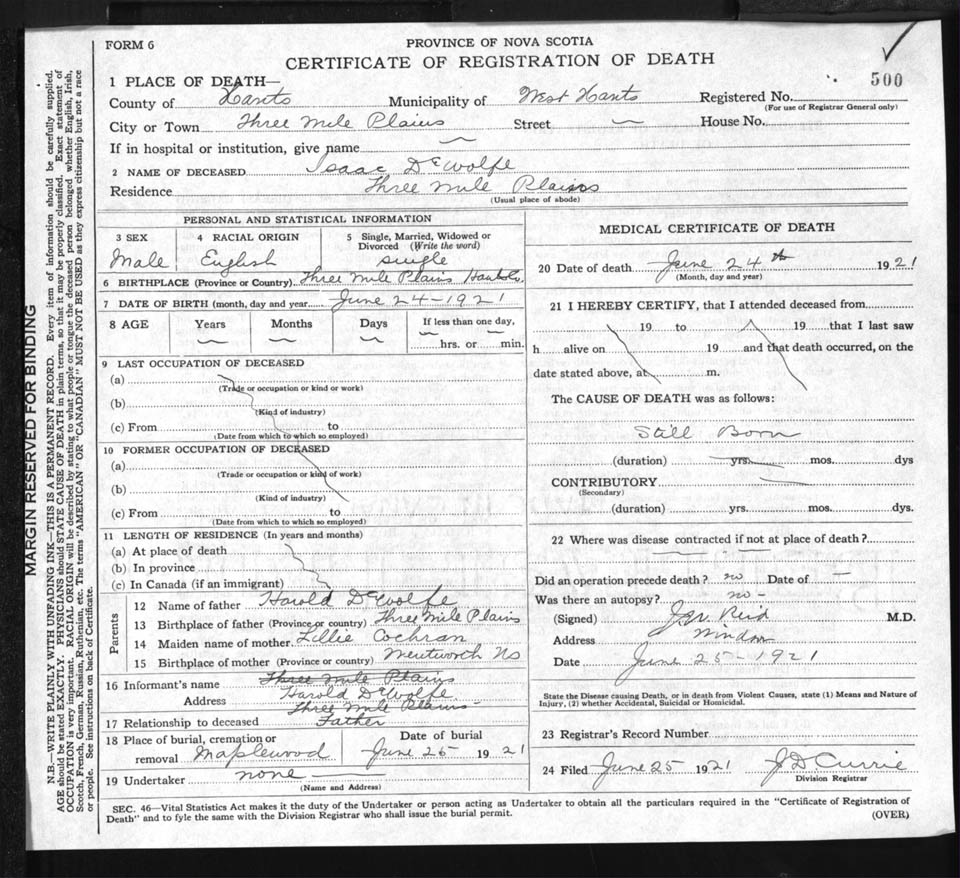 FORM 6
PROVINCE OF NOVA SCOTIA
CERTIFICATE OF REGISTRATION OF DEATH
500
1 PLACE OF DEATH—
County of Hants Municipality of West Hants Registered No.
(For use of Registrar General only)
City or Town Three Mile Plains Street — House No.
If in hospital or institution, give name —
2 NAME OF DECEASED Isaac DeWolfe
Residence Three Mile Plains
(Usual place of abode)
PERSONAL AND STATISTICAL INFORMATION
3 SEX 4 RACIAL ORIGIN 5 Single, Married, Widowed or Divorced (Write the word)
Male English single
6 BIRTHPLACE (Province or Country) Three Mile Plains Hants Co.
7 DATE OF BIRTH (month, day and year) June 24-1921
8 AGE Years Months Days If less than one day,
hrs. or min.
9 LAST OCCUPATION OF DECEASED
(a)
(Trade or occupation or kind or work)
(b)
(Kind of industry)
(c) From to
(Date from which to which so employed)
10 FORMER OCCUPATION OF DECEASED
(a)
(Trade or occupation or kind of work)
(b)
(Kind of industry)
(c) From to
(Date from which to which so employed)
11 LENGTH OF RESIDENCE (In years and months)
(a) At place of death
(b) In province
(c) In Canada (if an immigrant)
Parents
12 Name of father Harold DeWolfe
13 Birthplace of father (Province or country) Three Mile Plains
14 Maiden name of mother Lillie Cochran
15 Birthplace of mother (Province or country) Wentworth NS
16 Informant's name Three Mile Plains
Harold DeWolfe
Address Three Mile Plains
17 Relationship to deceased Father
18 Place of burial, cremation or removal Maplewood
Date of burial June 25 1921
19 Undertaker none —
(Name and Address)
MEDICAL CERTIFICATE OF DEATH
20 Date of death June 24th 1921
(Month, day and year)
21 I HEREBY CERTIFY, that I attended deceased from
19 to 19 that I last saw
h alive on 19 and that death occurred, on the
date stated above, at m.
The CAUSE OF DEATH was as follows:
Still Born
(duration) yrs. mos. dys
CONTRIBUTORY
(Secondary)
(duration) yrs. mos. dys.
22 Where was disease contracted if not at place of death?
Did an operation precede death? no Date of —
Was there an autopsy? no -
(Signed) Reid M.D.
Address Windsor
Date June 25-1921
State the Disease causing Death, or in death from Violent Causes, state (1) Means and Nature of
Injury, (2) whether Accidental, Suicidal or Homicidal.
23 Registrar's Record Number
24 Filed June 25 1921 J D Currie
Division Registrar
SEC. 46—Vital Statistics Act makes it the duty of the Undertaker or person acting as Undertaker to obtain all the particulars required in the "Certificate of Registration of
Death" and to fyle the same with the Division Registrar who shall issue the burial permit.
(OVER)
MARGIN RESERVED FOR BINDING
N.B.—WRITE PLAINLY WITH UNFADING INK—THIS IS A PERMANENT RECORD. Every item of information should be carefully supplied.
AGE should be stated EXACTLY. PHYSICIANS should STATE CAUSE OF DEATH in plain terms, so that it may be properly classified. Exact statement of
OCCUPATION is very important. RACIAL ORIGIN will be described by stating to what people or tongue the deceased person belonged whether English, Irish,
Scotch, French, German, Russian, Ruthenian, etc. The terms "AMERICAN" OR "CANADIAN" MUST NOT BE USED as they express citizenship but not a race
or people. See instructions on back of Certificate.